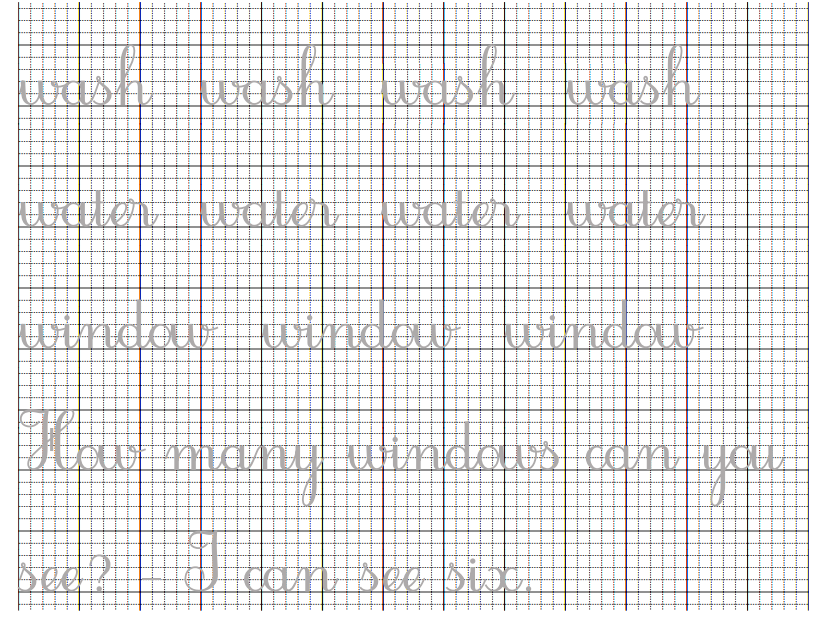 wash wash wash wash
water water water water
window window window
How many windows can you
see? – I can see six.